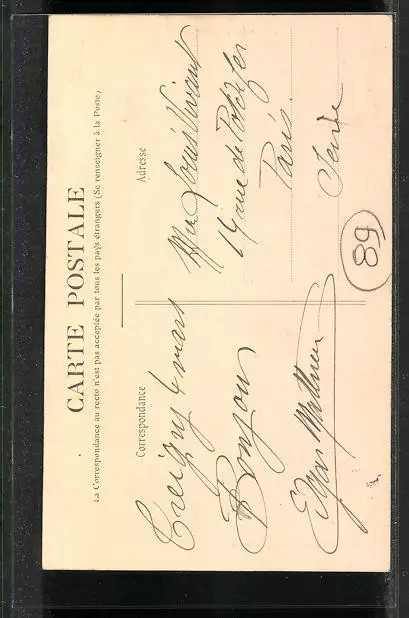 CARTE POSTALE
La Correspondance au recto n'est pas acceptée par tous les pays étrangers (Se renseigner à la Poste)
Correspondance
Treigny 4 mars
Bonjour
Adresse
Mr Louis Vivant
rue de
Paris
Seine
89